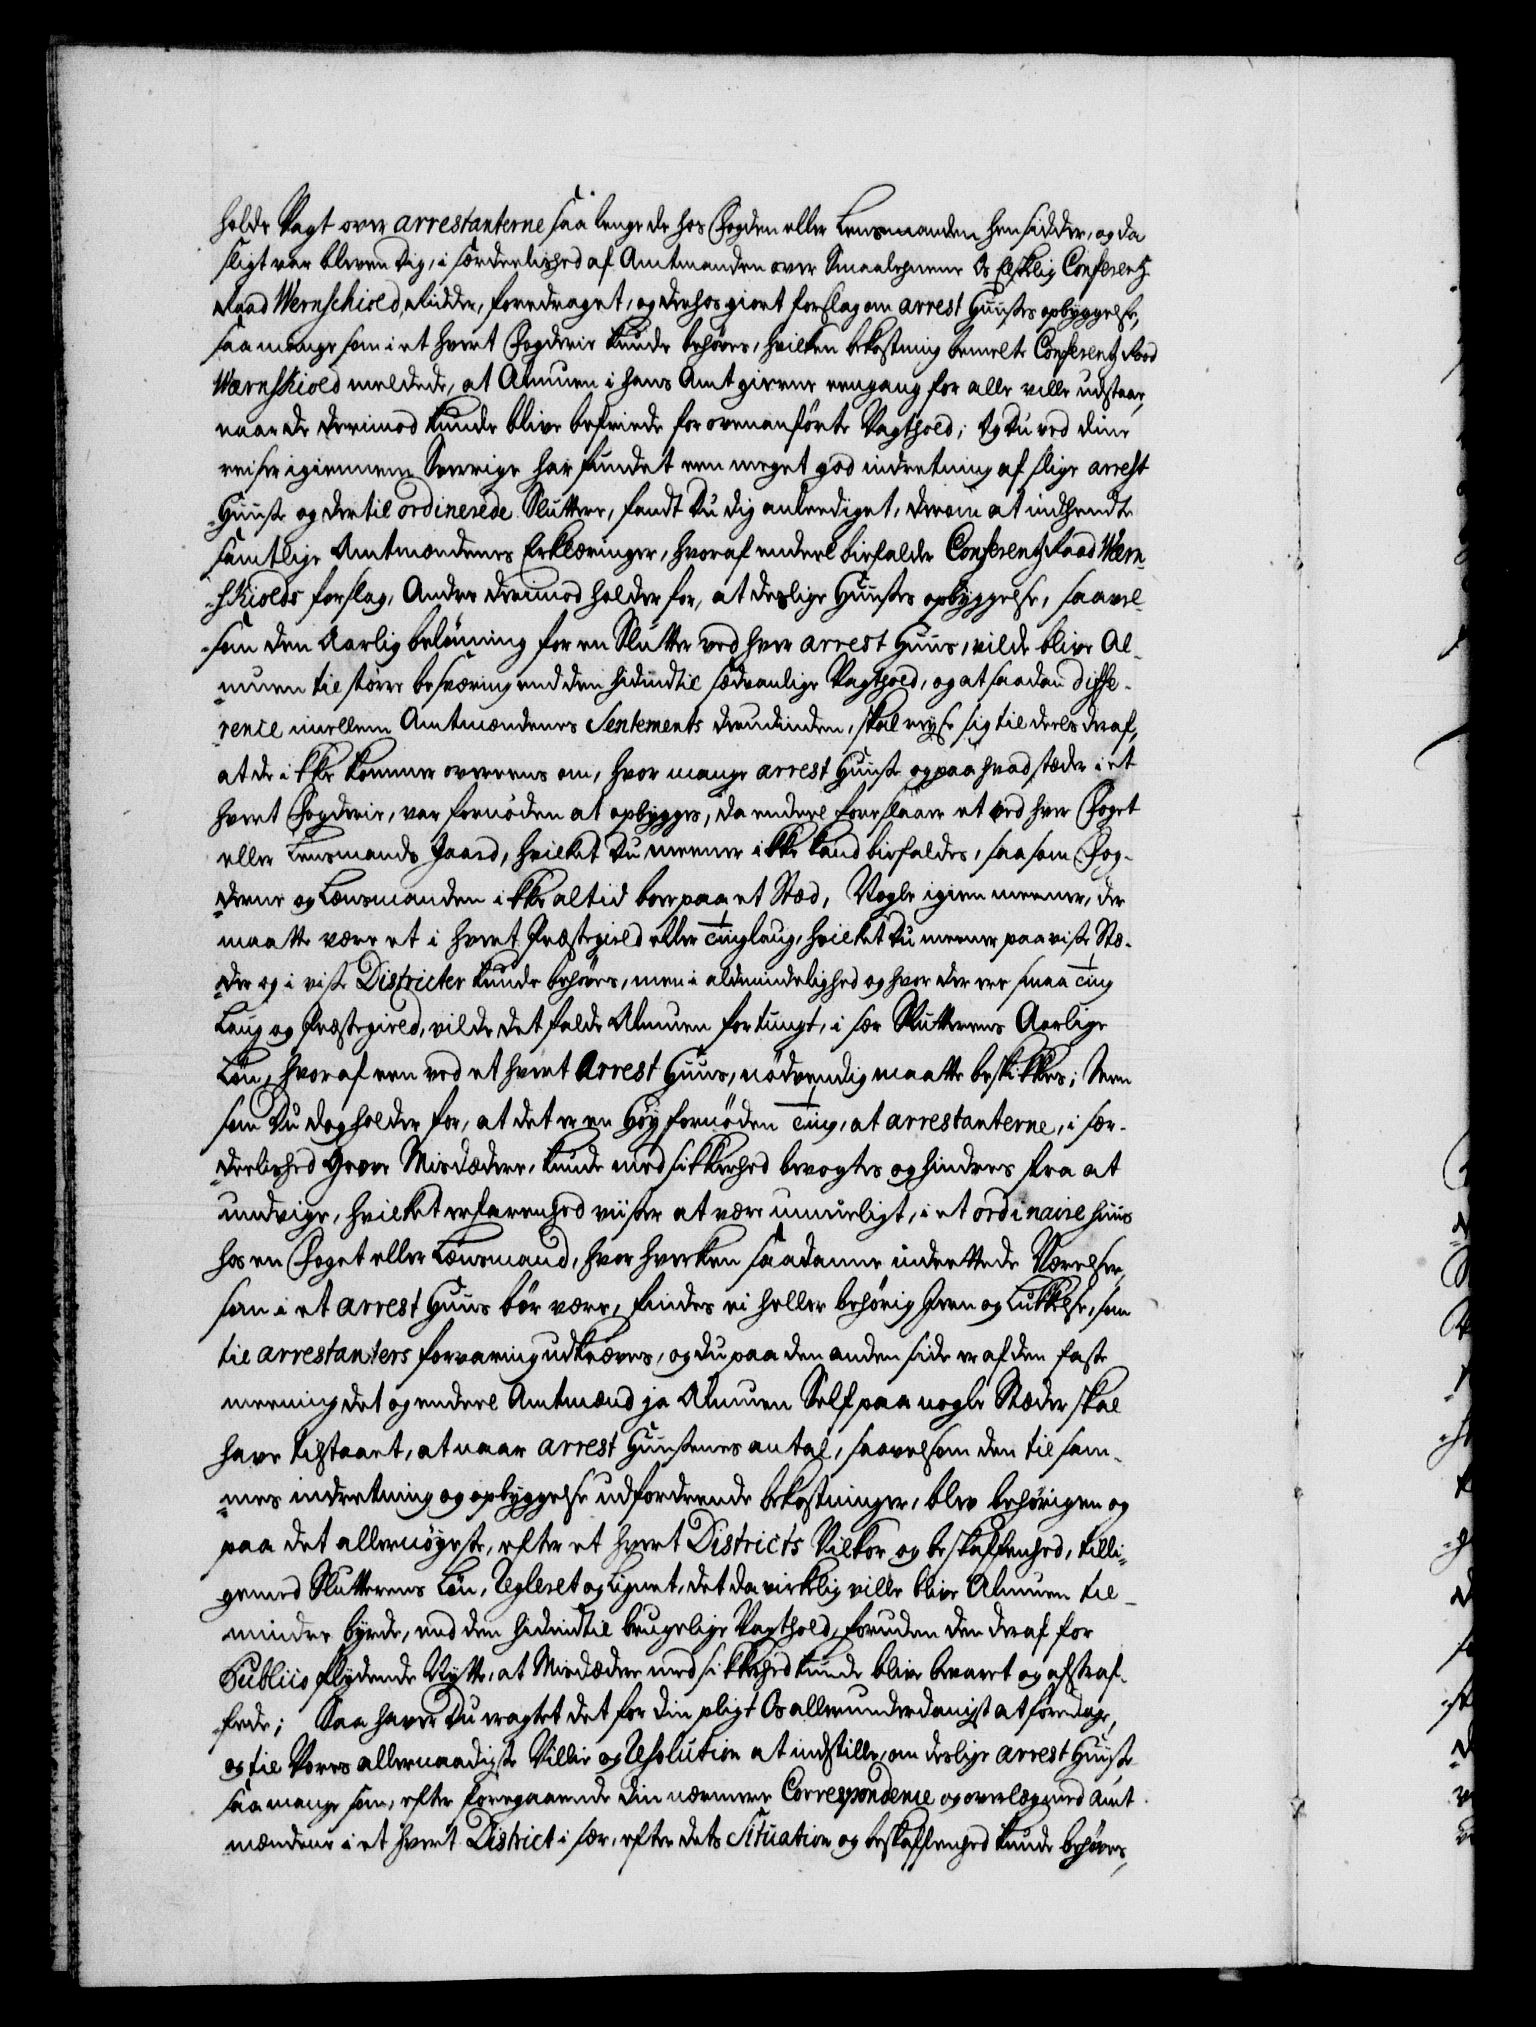 holde Vagt over arrestanterne saa lenge de hos Fogden eller Lensmanden hensidder, og da
sligt var bleven dig, i særdeelished af Amtmanden over Smaalehnene Os Elskelig Conferentz
Raad Wernschiold, Ridder, foredraget, og derhos giort forslag om arrest Huuses opbyggelse,
saa mange som i et hvert Fogderie kunde behøves, hvilken bekostning bemelte Conferentz Raad
Wærnskiold meldede, at Almuen i hans Amt gierne eengang for alle ville udstaae,
naar de derimod kunde blive befriede for ovenanførte Vagthold; Og Du ved dine
reiser igiennem Sverrige har fundet een meget god indretning af slige arrest
Huuse og dertil ordinerede Sluttere, fandt Du dig anlediget, derom at indhendte
samtlige Amtmændenes Erklæringer, hvoraf endeel biefalder Conferentz Raad Wern-
skiolds forslag, Andre derimod holder for, at deslige Huuses opbyggelse, saavel-
som den Aarlig belønning for en Slutter ved hver arrest Huus, vilde blive Al-
muen til større besværing end den hidindtil sædvanlige Vagthold, og at saadan diffe-
rence imellem Amtmændenes Sentements derudinden, skal reyse sig til deels deraf,
at de ikke kommer overeens om, hvor mange arrest Huuse og paa hvad stæder i et
hvert Fogderie, var fornøden at opbygges, da endeel foreslaaer et ved hver Foget
eller Lensmands Gaard, hvilket Du meener ikke kand biefaldes, saasom Fog-
derne og Lænsmanden ikke altid boer paa et Stæd, Nogle igien meener, der
maatte være et i hvert Præstegield eller Tinglaug, hvilket Du meener paa visse Stæ-
der og i visse Districter kunde behøves, men i aldmindelighed og hvor der ere smaa Ting
Laug og Præstegield, vilde det falde Almuen for tungt, i sær Slutterens Aarlige
Løn, hvoraf een ved et hvert Arrest Huus, nødvendig maatte beskikkes; Men
som Du dog holder for, at det er en Høy fornøden Ting, at arrestanterne, i sær-
deelished Grove Misdædere, kunde med sikkerhed bevogtes og hindres fra at
undvige, hvilket erfarenhed viiser at være umueligt, i et ordinaire huus
hos en Foget eller Lænsmand, hvor hverken saadanne indrettede Værelser,
som i et arrest Huus bør være, findes ei heller behørig Jern og Lukkelse, som
til arrestanters forvaring udkræves, og du paa den anden side er af den faste
meening det og endeel Amtmænd ja Almuen Self paa nogle Stæder skal
have tilstaaet, at naar arrest Huusenes antal, saavelsom den til sam-
mes indretning og opbyggelse udfordrende bekostninger, blev behørigen og
paa det allernøyeste, efter et hvert Districts Vilkor og beskaffenhed, tilli-
gemed Slutterens Løn, Regleret og Lignet, det da virkelig ville blive Almuen til
mindre byrde, end den hidindtil brugelige Vagthold, foruden den deraf for
Publico flydende Nytte, at Misdædere med sikkerhed kunde blive bevaret og afstraf-
fede; Saa haver Du eragtet det for din pligt Os allerunderdanigst at foredrage,
og til Vores allernaadigste Villie og Resolution at indstille, om deslige arrest Huuse
saa mange som, efter foregaaende din nærmere Correspondence og overlæg med Amt
mændene i et hvert District i sær, efter dets Situation og beskaffenhed kunde behøves,